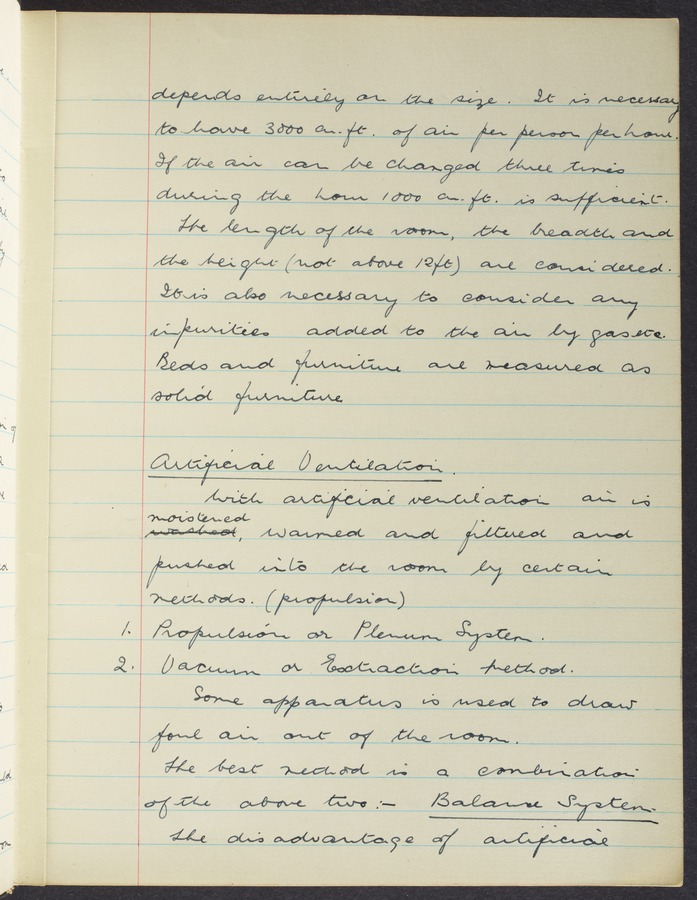 depends entirely on the size. It is necessary
to have 3000 cu.ft. of air per person per hour.
If the air can be changed three times
during the hour 1000 cu.ft. is sufficient.
The length of the room, the breadth and
the height (not above 12ft) are considered.
It is also necessary to consider any
impurities added to the air by gas etc.
Beds and furniture are measured as
solid furniture
Artificial Ventilation.
With artificial ventilation air is
moistened
washed, warmed and filtered and
pushed into the room by certain
methods. (propulsion)
1. Propulsion or Plenum System.
2. Vacuum or Extraction Method.
Some apparatus is used to draw
foul air out of the room.
The best method is a combination
of the above two:- Balance System.
The disadvantage of artificial